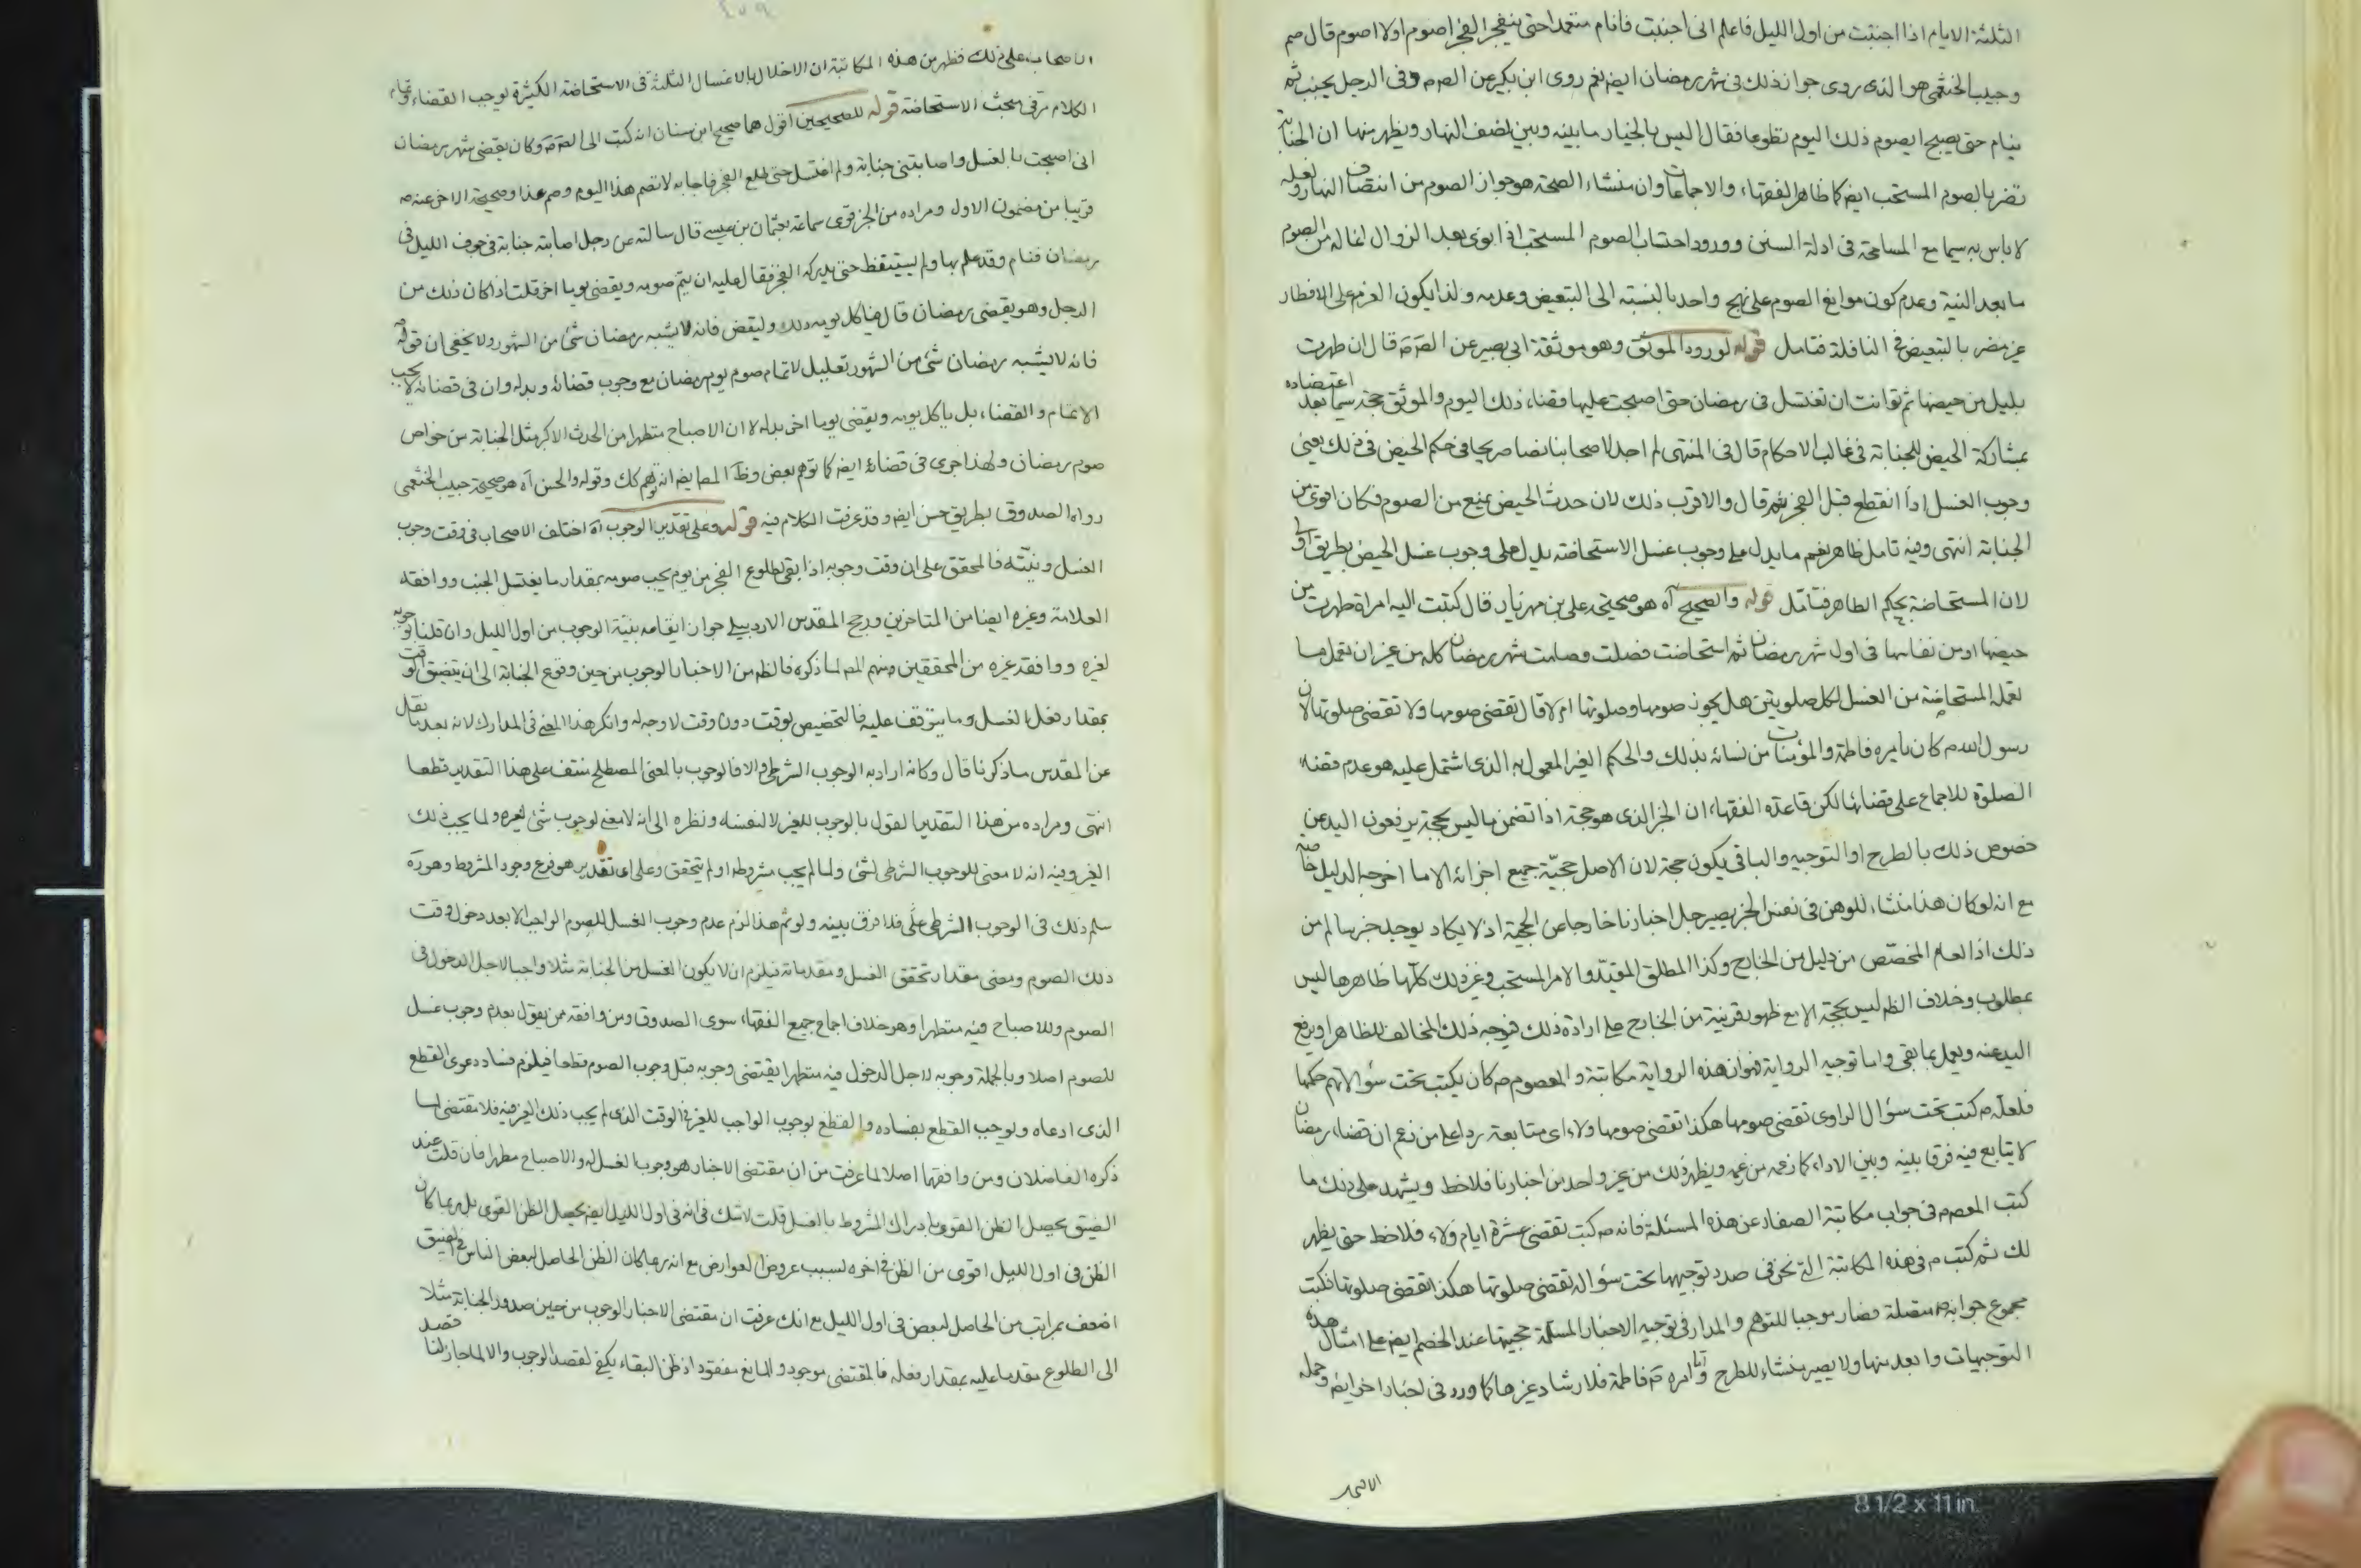 الثلثة الايام اذا اجنبت من اول الليل فاعلم انى اجنبت فانام متعمدا حتى ينفجر الفجر اصوم او لا اصوم قال صم
وحبيب الخثعمى هو الذى روى جواز ذلك فى شهر رمضان ايضا نعم روى ابن بكير عن الصم وفى الرجل يجنب ثم
ينام حتى يصبح ايصوم ذلك اليوم تطوعا فقال اليس بالخيار ما بينه وبين نصف النهار ويظهر منها ان الجنابة
تضر بالصوم المستحب ايضا كما ظاهر الفقهاء والاجماعات وان منشاء الصحة هو جواز الصوم من انتصاف النهار ولعله
لا باس به سيما مع المسامحة فى ادلة السنن وورود احتساب الصوم المستحب اذا نوى بعد الزوال انما له من الصوم
ما بعد النية وعدم كون موانع الصوم على نهج واحد بالنسبة الى التبعيض وعدمه ولذا يكون العزم على الافطار
غير مضر بالتبعيض فى النافلة فتامل قوله لورود الموثق وهو موثقة ابى بصير عن الصم قال ان طهرت
بليل من حيضها ثم توانت ان تغتسل فى رمضان حتى اصبحت عليها قضاء ذلك اليوم والموثق حجة سيما بعد اعتضاده
بمشاركة الحيض للجنابة فى غالب الاحكام قال فى المنتهى لم اجد لاصحابنا نصا صريحا فى حكم الحيض فى ذلك يعنى
وجوب الغسل اذا انقطع قبل الفجر ثم قال والاقرب ذلك لان حدث الحيض يمنع من الصوم فكان اقوى من
الجنابة انتهى وفيه تامل ظاهر نعم ما يدل على وجوب غسل الاستحاضة يدل على وجوب غسل الحيض بطريق اولى
لان المستحاضة بحكم الطاهر فتامل قوله والصحيح آه هو صحيحة على بن مهزيار قال كتبت اليه امراة طهرت من
حيضها او من نفاسها فى اول شهر رمضان ثم استحاضت فصلت وصامت شهر رمضان كله من غير ان تعمل ما
تعمله المستحاضة من الغسل لكل صلوتين هل يجوز صومها وصلوتها ام لا قال تقضى صومها ولا تقضى صلوتها لان
رسول الله م كان يامره فاطمة والمؤمنات من نسائه بذلك والحكم الغير المعمول به الذى اشتمل عليه هو عدم قضاء
الصلوة للاجماع على قضائها لكن قاعدة الفقهاء ان الخبر الذى هو حجة اذا تضمن ما ليس بحجة يرفعون اليد عن
خصوص ذلك بالطرح او التوجيه والباقى يكون حجة لان الاصل حجيّة جميع اجزائه الا ما اخرجه الدليل خاصة
مع انه لو كان هذا منشاء للوهن فى نفس الخبر يصير جل اخبارنا خارجا عن الحجية اذ لا يكاد يوجد خبر سالم من
ذلك اذ العام المخصّص من دليل من الخارج وكذا المطلق المقيّد والامر المستحب وغير ذلك كلها ظاهرها ليس
بمطلوب وخلاف الظم ليس بحجة الا مع ظهور قرينة من الخارج على ارادة ذلك فيوجه ذلك المخالف للظاهر او يرفع
اليد عنه ويعمل بما بقى واما توجيه الرواية فهو ان هذه الرواية مكاتبة والمعصوم م كان يكتب تحت سؤالاتهم حكمها
فلعله م كتب تحت سؤال الراوى تقضى صومها هكذا تقضى صومها ولاء اى متابعة ردا على من زعم ان قضاء رمضان
لا يتابع فيه فرقا بينه وبين الاداء كما زعمه من زعمه ويظهر ذلك من غير واحد من اخبارنا فلاحظ ويشهد على ذلك ما
كتب المعصم فى جواب مكاتبة الصفار عن هذه المسئلة فانه م كتب تقضى عشرة ايام ولاء فلاحظ حتى يظهر
لك ثم كتب م فى هذه المكاتبة التى نحن فى صدد توجيهها تحت سؤاله تقضى صلوتها هكذا تقضى صلوتها فكتب
مجموع جوابه م متصلة فصار موجبا للتوهم والمدار فى توجيه الاخبار المسلمة حجيتها عند الخصم ايضا على امثال هذه
التوجيهات وابعد منها ولا يصير منشاء للطرح واما امره م فاطمة فلارشاد غيرها كما ورد فى اخبار اخر ايضا وحمله
الاصحاب على ذلك فظهر من هذه المكاتبة ان الاخلال بالاغسال الثلثة فى الاستحاضة الكثيرة يوجب القضاء وتمام
الكلام مر فى مبحث الاستحاضة قوله للصحيحين اقول هما صحيح ابن سنان انه كتب الى الصم وكان يقضى شهر رمضان
انى اصبحت بالغسل واصابتنى جنابة ولم اغتسل حتى طلع الفجر فاجابه لا تصم هذا اليوم وصم غدا وصحيحة الاخر عنه م
قريبا من مضمون الاول ومراده من الخبر قوى سماعة بعثمان بن عيسى قال سالته عن رجل اصابته جنابة فى جوف الليل فى
رمضان فنام وقد علم بها ولم يستيقظ حتى يدركه الفجر فقال عليه ان يتم صومه ويقضى يوما اخر قلت اذا كان ذلك من
الرجل وهو يقضى رمضان قال فياكل يومه ذلك وليقض فانه لا يشبه رمضان شئ من الشهور ولا يخفى ان قوله
فانه لا يشبه رمضان شئ من الشهور تعليل لاتمام صوم يوم رمضان مع وجوب قضائه وبدله وان فى قضائه لا يجب
الاتمام والقضاء بل ياكل يومه ويقضى يوما اخر بدله لا ان الاصباح متطهرا من الحدث الاكبر مثل الجنابة من خواص
صوم رمضان ولهذا جرى فى قضائه ايضا كما توهم بعض وظا المص ايضا انه توهم كك وقوله والحسن آه هو صحيحة حبيب الخثعمى
رواه الصدوق بطريق حسن ايضا وقد عرفت الكلام فيه قوله وعلى تقدير الوجوب آه اختلف الاصحاب فى وقت وجوب
الغسل ونيّته فالمحقق على ان وقت وجوبه اذا بقى لطلوع الفجر من يوم يجب صومه بمقدار ما يغتسل الجنب ووافقه
العلامة وغيره ايضا من المتاخرين ورجح المقدس الاردبيلى جواز ايقاعه بنية الوجوب من اول الليل وان قلنا بوجوبه
لغيره ووافقه غيره من المحققين منهم المص لما ذكره فالظم من الاخبار الوجوب من حين وقوع الجنابة الى ان يتضيق الوقت
بمقدار فعل الغسل وما يتوقف عليه فالتخصيص بوقت دون وقت لا وجه له وانكر هذا المعنى فى المدارك لانه بعد ما نقل
عن المقدس ما ذكرنا قال وكانه اراد به الوجوب الشرطى والا فالوجوب بالمعنى المصطلح منتف على هذا التقدير قطعا
انتهى ومراده من هذا التقدير القول بالوجوب للغير لا لنفسه ونظره الى انه لا معنى لوجوب شئ لغيره ولما يجب ذلك
الغير وفيه انه لا معنى للوجوب الشرطى لشئ ولما لم يجب مشروطه او لم يتحقق وعلى اى تقدير هو فرع وجود المشروط وهو ره
سلم ذلك فى الوجوب الشرطى على فلا فرق بينه ولو تم هذا لزم عدم وجوب الغسل للصوم الواجب الا بعد دخول وقت
ذلك الصوم ومضى مقدار تحقق الغسل ومقدماته فيلزم ان لا يكون الغسل من الجنابة مثلا واجبا لاجل الدخول فى
الصوم وللاصباح فيه متطهرا وهو خلاف اجماع جميع الفقهاء سوى الصدوق ومن وافقه ممن يقول بعدم وجوب غسل
للصوم اصلا وبالجملة وجوبه لاجل الدخول فيه متطهرا يقتضى وجوبه قبل وجوب الصوم قطعا فيلزم فساد دعوى القطع
الذى ادعاه ويوجب القطع بفساده والقطع بوجوب الواجب للغير فى الوقت الذى لم يجب ذلك الغير فيه فلا مقتضى لما
ذكره الفاضلان ومن وافقهما اصلا لما عرفت من ان مقتضى الاخبار هو وجوب الغسل له والاصباح مطهرا فان قلت عند
الضيق يحصل الظن القوى بادراك المشروط بالغسل قلت لا شك فى انه فى اول الليل ايضا يحصل الظن القوى بل ربما كان
الظن فى اول الليل اقوى من الظن فى اخره بسبب عروض العوارض مع انه ربما كان الظن الحاصل لبعض الناس فى الضيق
اضعف بمراتب من الحاصل لبعض فى اول الليل مع انك عرفت ان مقتضى الاخبار الوجوب من حين صدور الجنابة مثلا
الى الطلوع مقدما عليه بمقدار فعله فالمقتضى موجود والمانع مفقود اذ ظن البقاء يكفى لقصد الوجوب والا لما جاز لنا قصد
8 1/2 x 11 in.